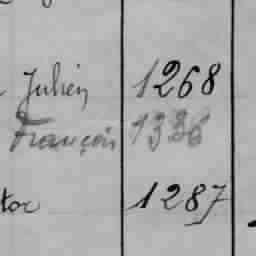 Julien 1268
François 1336
tor 1287